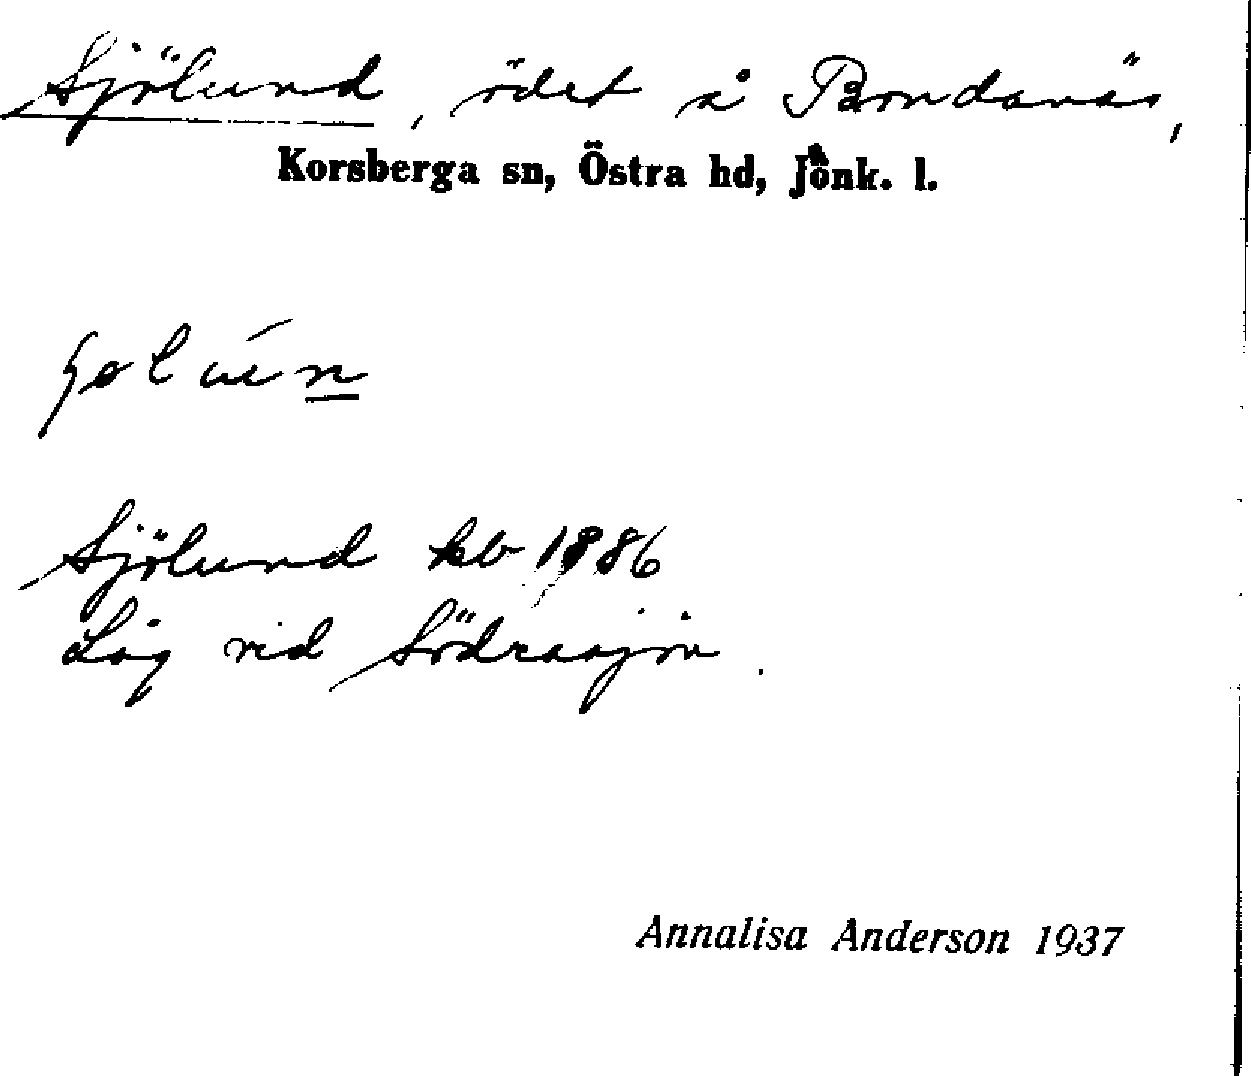 Sjölund, ödet å Bondanäs,
Korsberga sn, Östra hd, Jönk. l.
Sjölund kb 1886
Låg vid Södrasjön.
Annalisa Anderson 1937